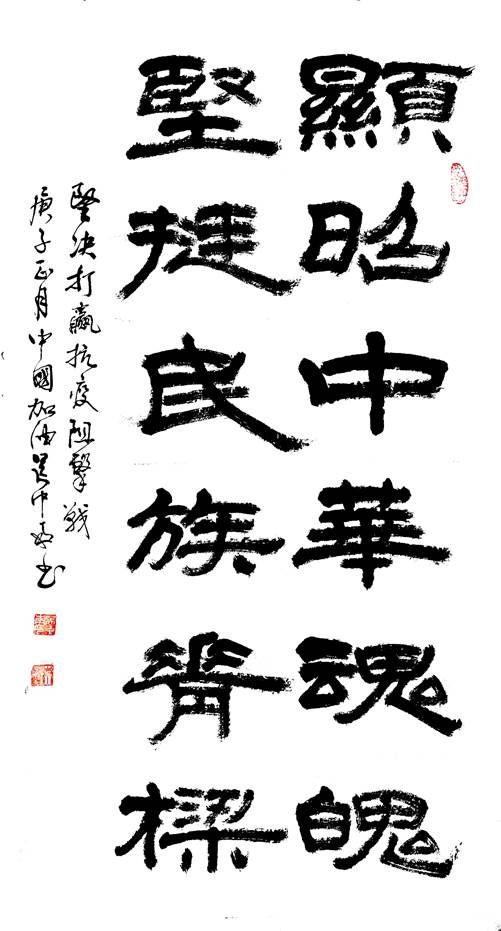 顯昭中華魂魄
堅挺民族脊樑
堅决打贏抗疫阻擊戰
庚子正月中國加油吴中书